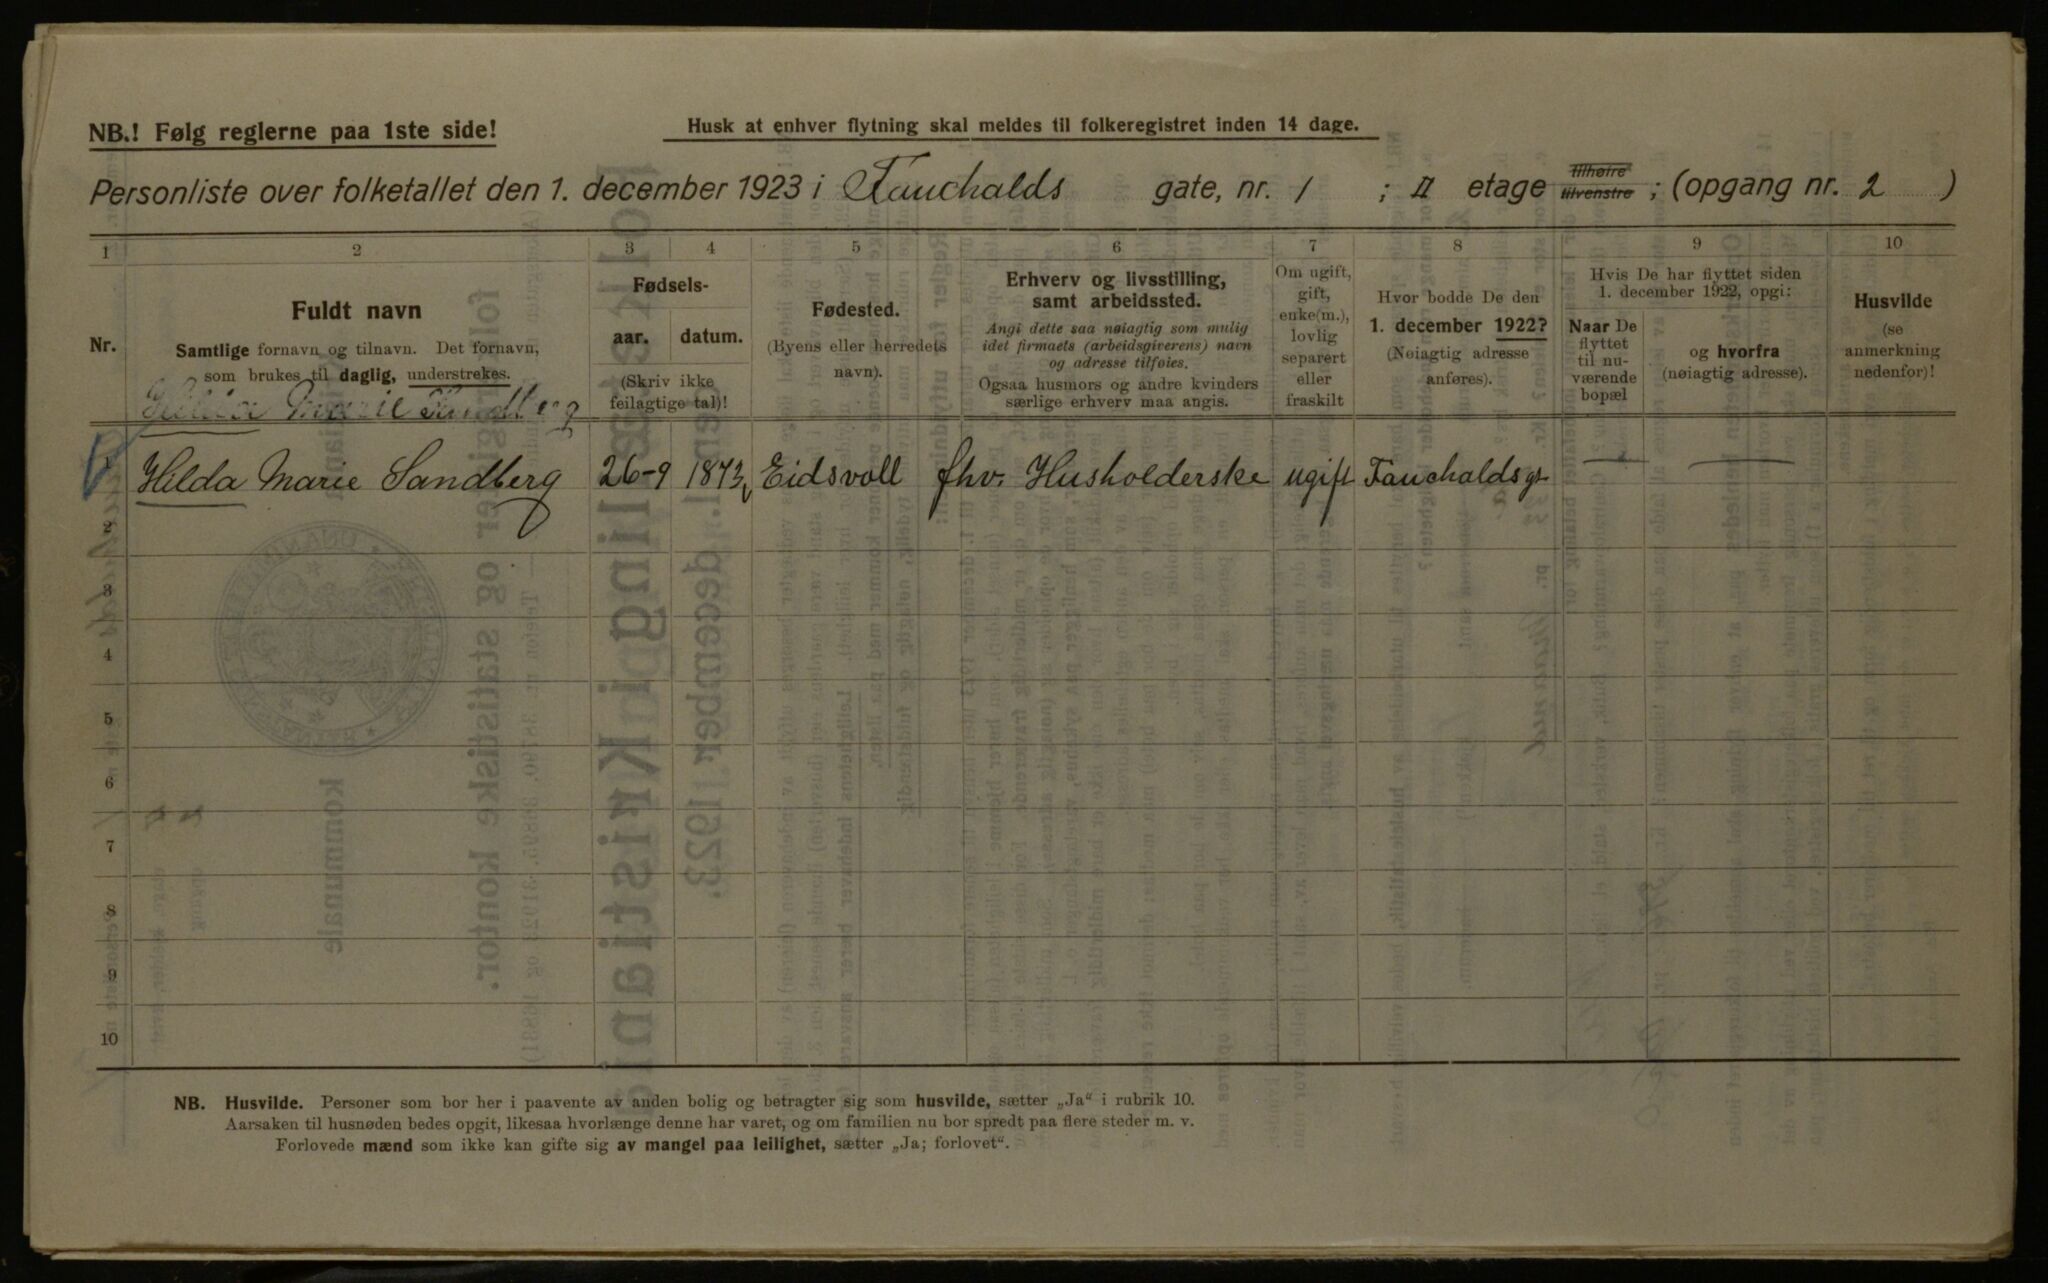 NB.! Følg reglerne paa 1ste side!
Husk at enhver flytning skal meldes til folkeregistret inden 14 dage.
Personliste over folketallet den 1. december 1923 i Fauchalds gate, nr. 1 ; II etage tilhøire tilvenstre ; (opgang nr. 2 )
1 2 3 4 5 6 7 8 9 10
Nr.
Fuldt navn
Samtlige fornavn og tilnavn. Det fornavn,
som brukes til daglig, understrekes.
Fødsels-
aar. datum.
(Skriv ikke
feilagtige tal)!
Fødested.
(Byens eller herredets
navn).
Erhverv og livsstilling,
samt arbeidssted.
Angi dette saa nøiagtig som mulig
idet firmaets (arbeidsgiverens) navn
og adresse tilføies.
Ogsaa husmors og andre kvinders
særlige erhverv maa angis.
Om ugift,
gift,
enke(m.),
lovlig
separert
eller
fraskilt
Hvor bodde De den
1. december 1922?
(Nøiagtig adresse
anføres).
Hvis De har flyttet siden
1. december 1922, opgi:
Naar De
flyttet
til nu-
værende
bopæl
og hvorfra
(nøiagtig adresse).
Husvilde
(se
anmerkning
nedenfor)!
Hilda Marie Sandberg
1 Hilda Marie Sandberg 26-9 1873 Eidsvoll fhv. Husholderske ugift Fauchaldsgt — —
2
3
4
5
6
7
8
9
10
NB. Husvilde. Personer som bor her i paavente av anden bolig og betragter sig som husvilde, sætter „Ja“ i rubrik 10.
Aarsaken til husnøden bedes opgit, likesaa hvorlænge denne har varet, og om familien nu bor spredt paa flere steder m. v.
Forlovede mænd som ikke kan gifte sig av mangel paa leilighet, sætter „Ja; forlovet“.